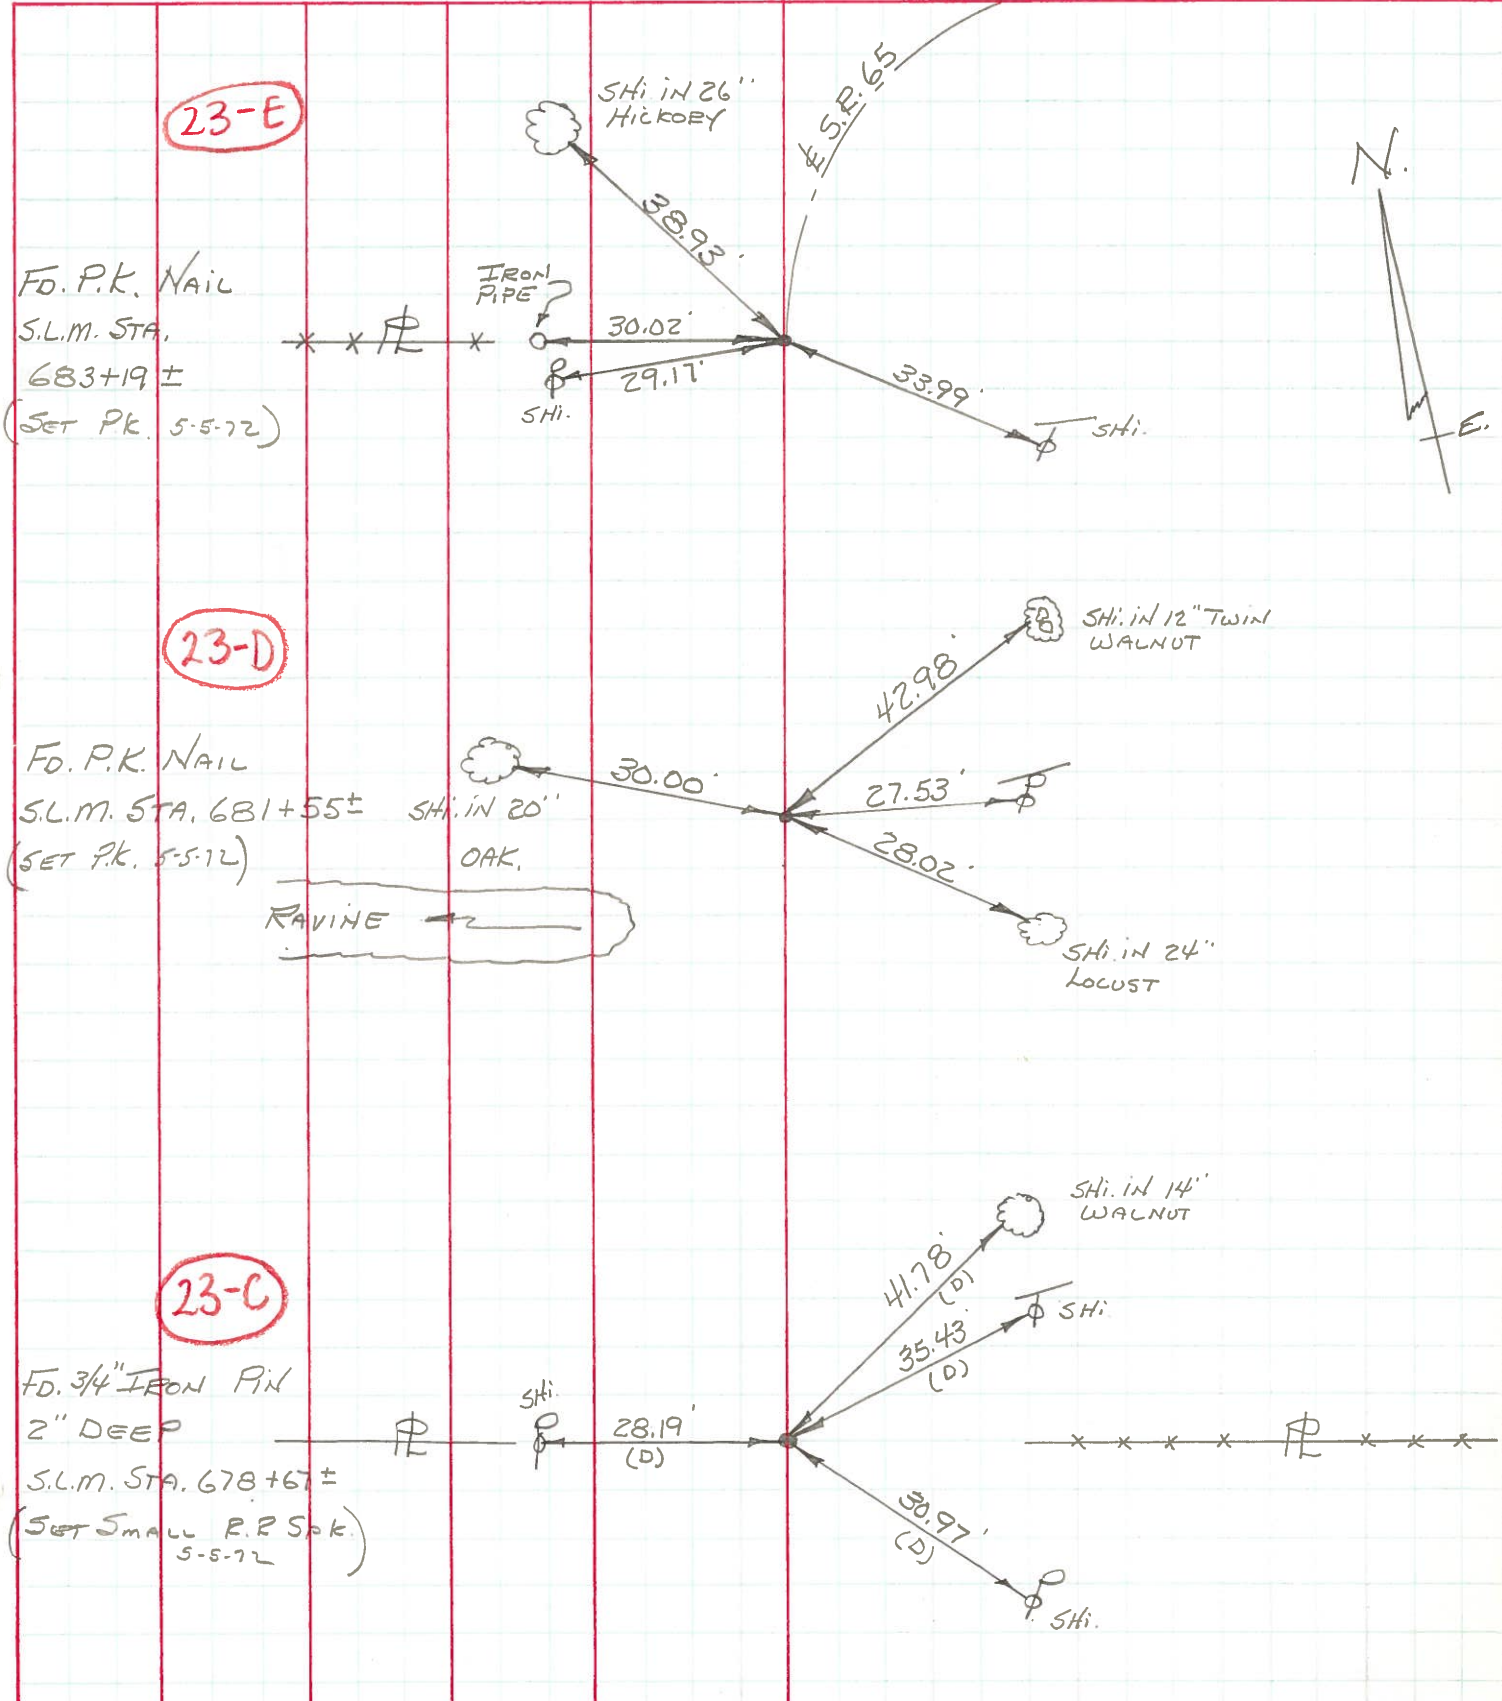 23-E
SHi. iN 26"
HiCKORY
℄ S.R. 65
N.
E.
38.93'
FD. P.K. NAiL
S.L.M. STA.
683+19 ±
(SET PK. 5-5-72)
℄
IRON
PIPE
30.02'
29.17'
SHi.
33.99'
SHi.
23-D
SHi. iN 12" TWiN
WALNUT
42.98'
FD. P.K. NAIL
S.L.M. STA. 681+55±
(SET P.K. 5-5-72)
SHi. iN 20"
OAK.
30.00'
27.53'
28.02'
RAVINE
SHi. iN 24"
LOCUST
23-C
SHi. iN 14"
WALNUT
41.78'
(D)
35.43'
(D)
SHi.
FD. 3/4" IRON PiN
2" DEEP
S.L.M. STA. 678+67±
(SET SMALL R.R SPK.)
5-5-72
PL
SHi.
28.19'
(D)
PL
30.97'
(D)
SHi.